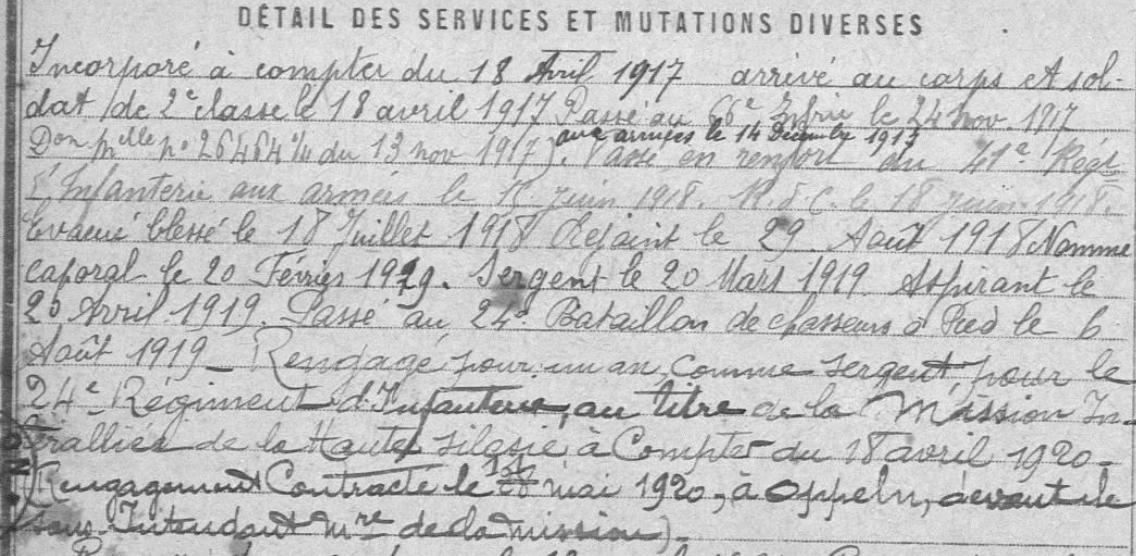 DÉTAIL DES SERVICES ET MUTATIONS DIVERSES
Incorporé à compter du 18 Avril 1917 arrivé au corps et sol-
dat de 2e classe le 18 avril 1917 Passé au 66e Infrie le 24 nov. 1917
aux armées le 14 Décembre 1917
Don mlle no 26464 du 13 nov 1917). Passé en renfort du 41e Régt
d'Infanterie aux armées le juin 1918. R.d.C. le 18 juin 1918.
Evacué blessé le 18 Juillet 1918 Rejoint le 29 Août 1918 Nommé
caporal le 20 Février 1919. Sergent le 20 Mars 1919. Aspirant le
20 Avril 1919. Passé au 24e Bataillon de chasseurs à Pied le 6
Août 1919 _ Rengagé pour un an, comme sergent, pour le
24e Régiment d'Infanterie, au titre de la Mission In-
teralliée de la Haute Silésie à Compter du 18 avril 1920 -
(Rengagement Contracté le mai 1920, à Oppeln, devant le
Sous-Intendant mre de la mission).